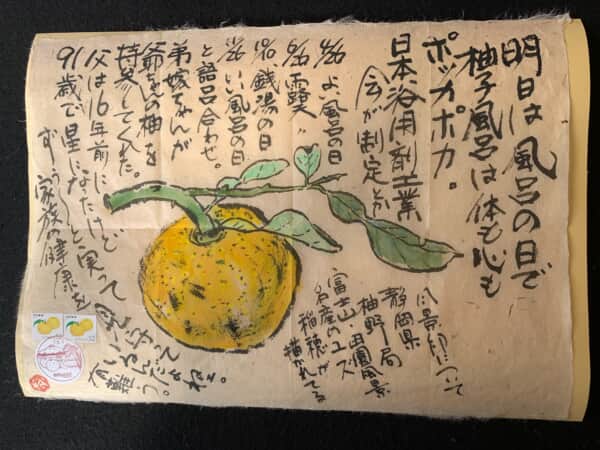 明日は風呂の日で
柚子風呂は体も心も
ポッカポカ。
日本浴用剤工業
会が制定とか
4/26 よい風呂の日
6/26 露天〃
10/10 銭湯の日
11/26 いい風呂の日
と語呂合わせ。
弟嫁ちゃんが
爺を
の柚を
持参してくれた。
父は16年前に
91歳で星になったけど
ずうーっと
実って
家族の健康を
見守って
いるんだよねぇ。
有難う。
風景印について
静岡県
柚野局
富士山・田園風景
名産のユズ
稲穂が
描かれてる